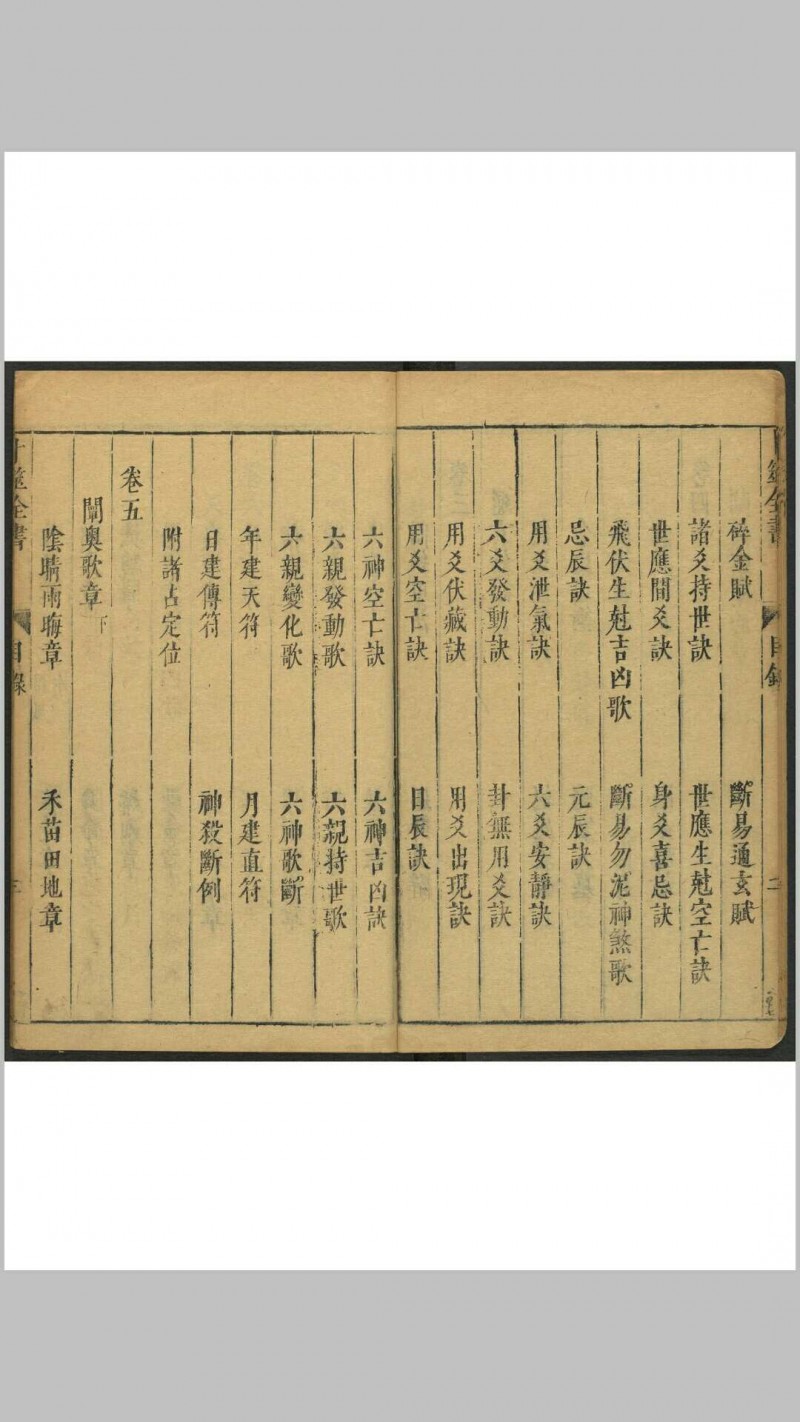 筮全書 目錄 二
碎金賦 斷易通玄賦
諸爻持世訣 世應生尅空亡訣
世應間爻訣 身爻喜忌訣
飛伏生尅吉凶歌 斷易勿泥神煞歌
忌辰訣 元辰訣
用爻泄氣訣 六爻安靜訣
六爻發動訣 卦無用爻訣
用爻伏藏訣 用爻出現訣
用爻空亡訣 日辰訣
六神空亡訣 六神吉凶訣
六親發動歌 六親持世歌
六親變化歌 六神歌斷
年建天符 月建直符
日建傳符 神殺斷例
附諸占定位
卷五
闡奧歌章下
陰晴雨晦章 禾苗田地章
卜筮全書 目錄 三